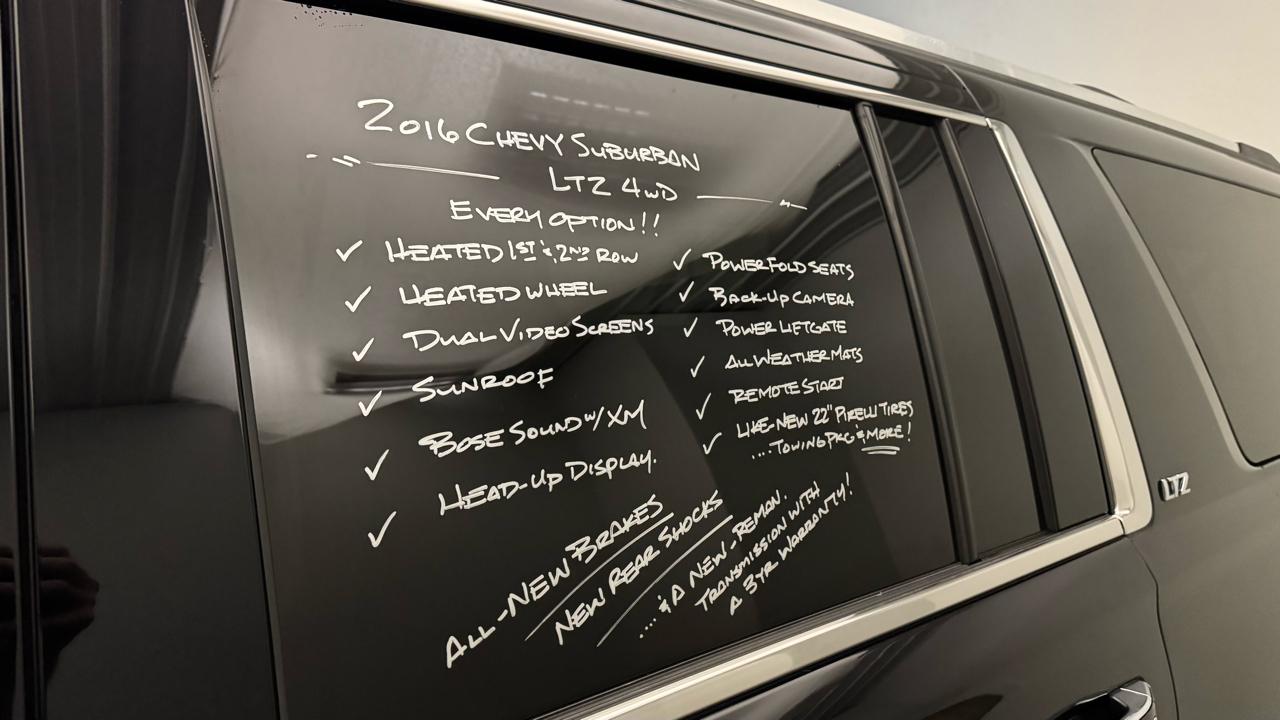 2016 CHEVY SUBURBAN
LTZ 4WD
EVERY OPTION!!
✓ HEATED 1ST & 2ND ROW
✓ HEATED WHEEL
✓ DUAL VIDEO SCREENS
✓ SUNROOF
✓ BOSE SOUND W/ XM
✓ HEAD-UP DISPLAY.
✓ POWER FOLD SEATS
✓ BACK-UP CAMERA
✓ POWER LIFTGATE
✓ ALL WEATHER MATS
✓ REMOTE START
✓ LIKE-NEW 22" PIRELLI TIRES
....TOWING PKG & MORE!
ALL-NEW BRAKES
NEW REAR SHOCKS
....& A NEW-REMAN.
TRANSMISSION WITH
A 3YR WARRANTY!
LTZ